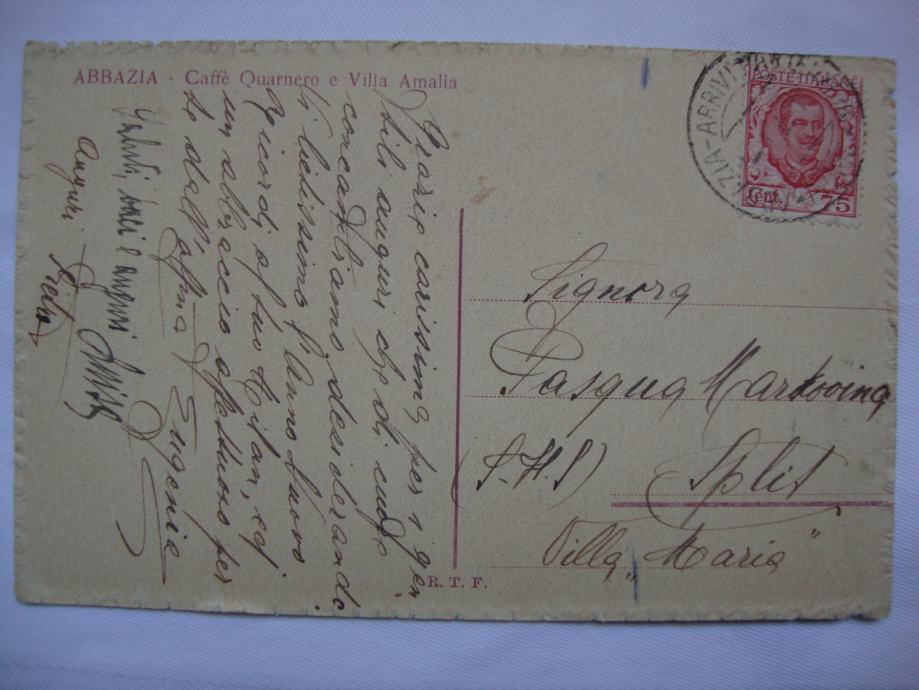 ABBAZIA - Caffè Quarnero e Villa Amalia
Grazie carissima per i gen
tili auguri che di cuore
contraccambiamo desiderando
vi lietissimo l'Anno nuovo
Ricordi al tuo Milan, ed
un abbraccio affettuoso per
te dall'aff.ma
Eugenia
Saluti, baci e auguri
Auguri
POSTE ITALIANE
Cent. 75
ARRIVI
Signora
Pasqua Martovina
(S.H.S) Split
Villa „Maria"
R. T. F.